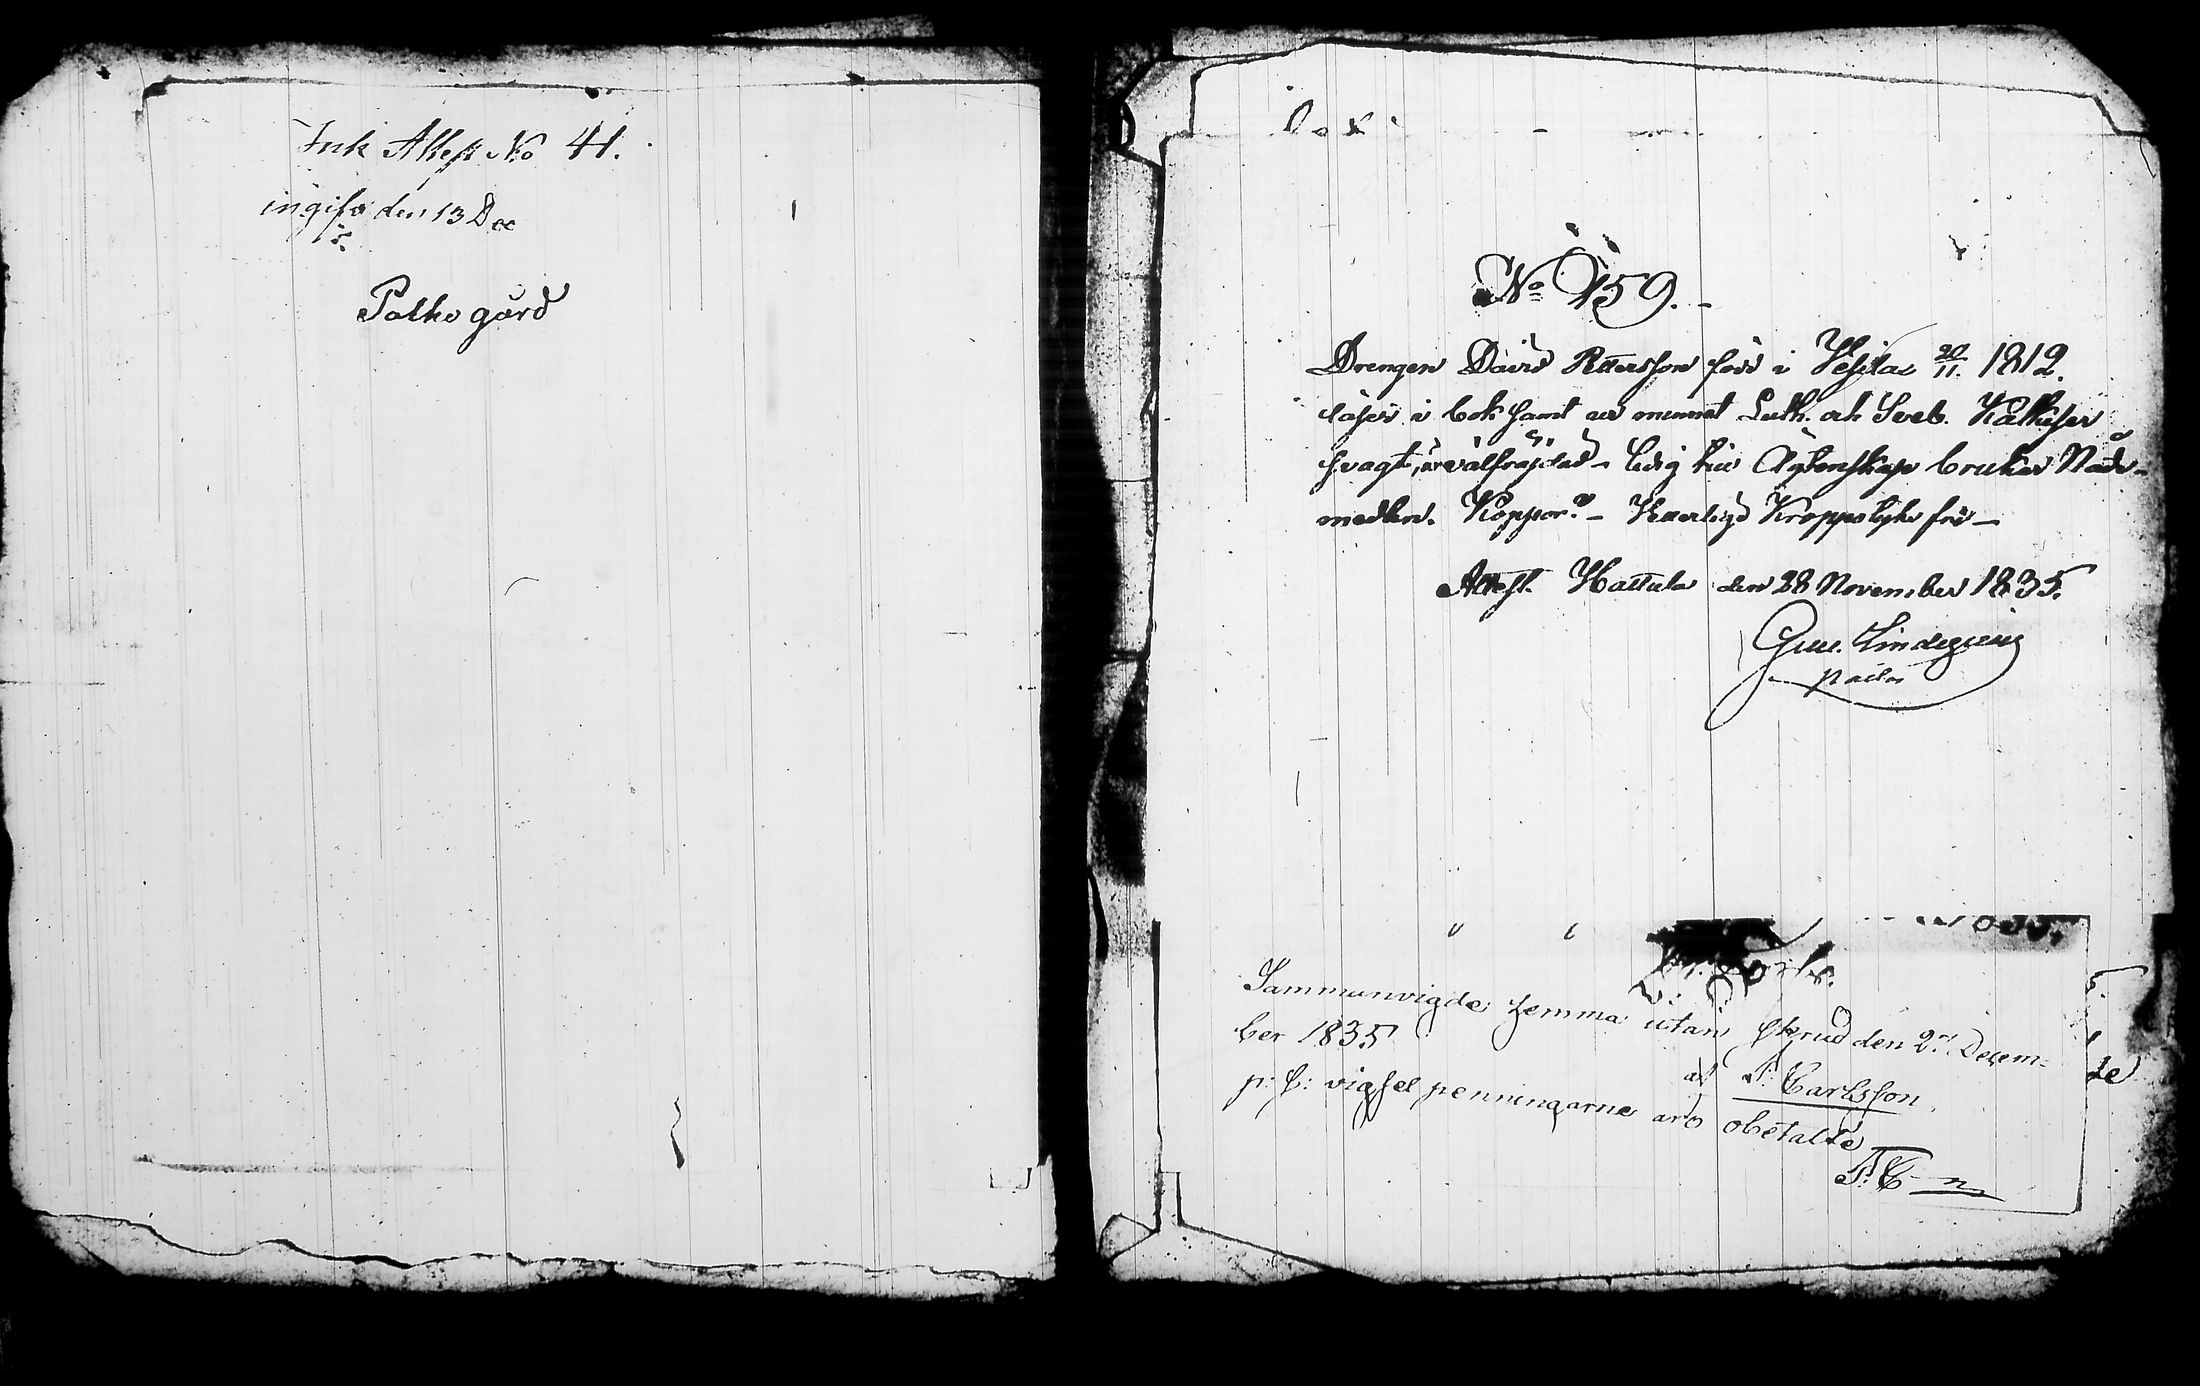 Ink Attest No 41.
ingifv den 13 Dec
Palko gård
No 159.
Drengen David Pettersson född i Vesila 20/11. 1812.
läser i bok samt ur minnet Luth. och Sveb. Katkeser
svagt, är välfräjdad - ledig till Ägtenskap brukar Nåde-
medlen. Koppor - Ytterligt Kroppslyte fri -
Attest. Hattula den 28 November 1835.
Gust. Lindeqvist
Sammanvigde hemma utan skrud den 2 Decem-
ber 1835
af F: Carlsson
p: S: vigsel penningarne äro obetalte
F: C-n
de